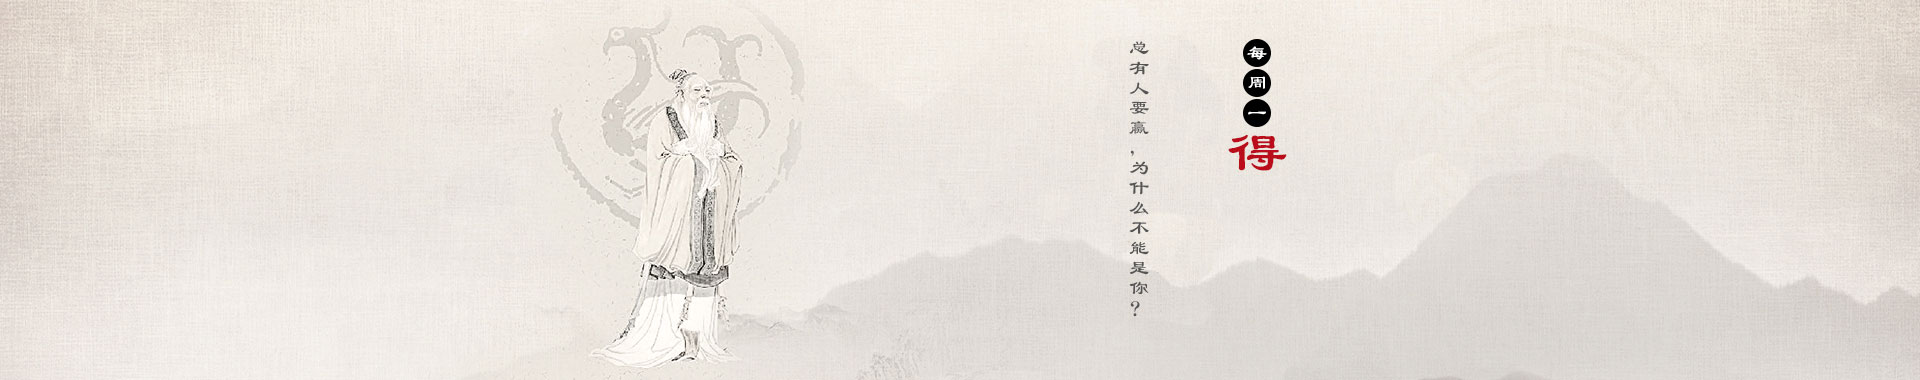 每周一得
总有人要赢，为什么不能是你？